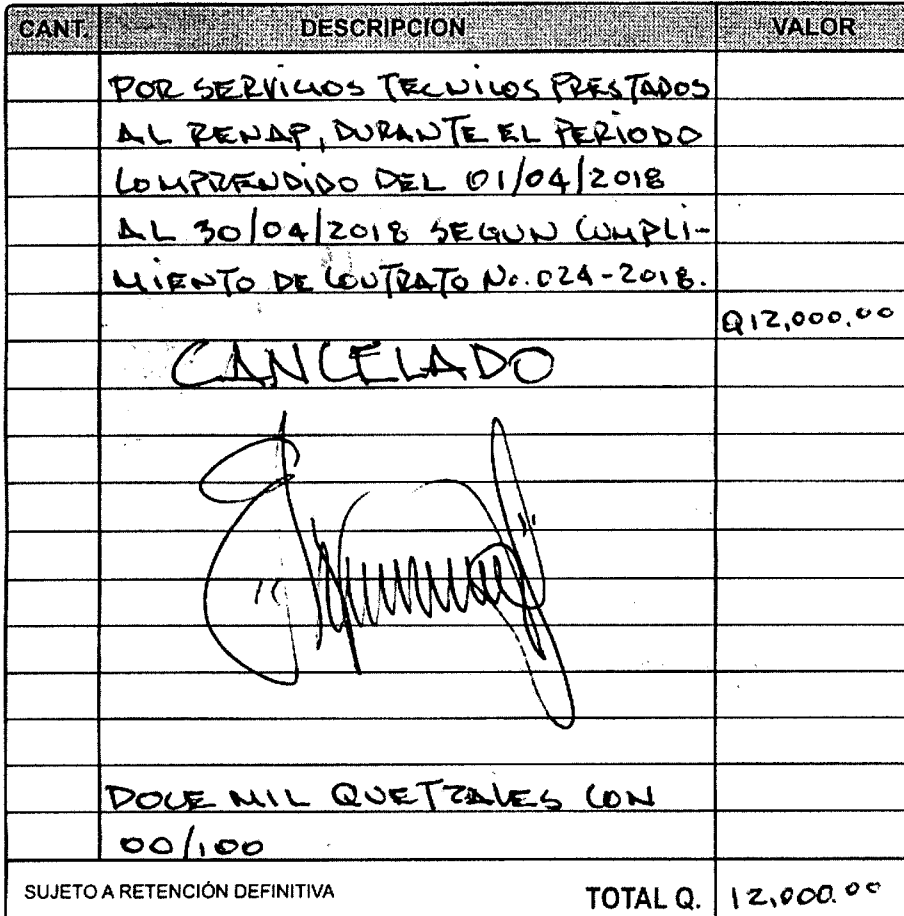 CANT. DESCRIPCION VALOR
POR SERVICIOS TECNICOS PRESTADOS
AL RENAP, DURANTE EL PERIODO
COMPRENDIDO DEL 01/04/2018
AL 30/04/2018 SEGUN CUMPLI-
MIENTO DE CONTRATO No. 024-2018.
Q12,000.00
CANCELADO
DOCE MIL QUETZALES CON
00/100
SUJETO A RETENCIÓN DEFINITIVA TOTAL Q. 12,000.00